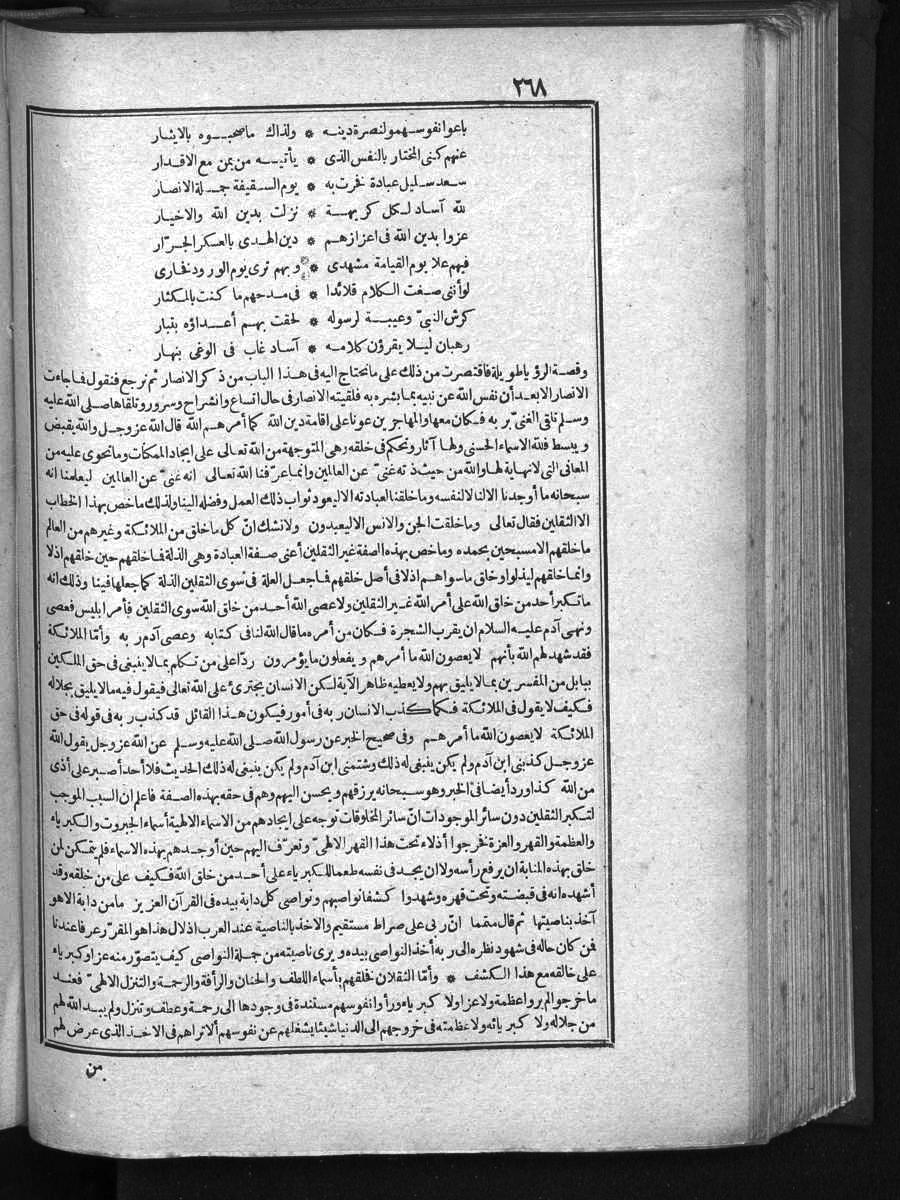 ٢٦٨
باعوا نفوسهمو لنصرة دينه * ولذاك ماصحبوه بالايثار
عنهم كنى المختار بالنفس الذى * يأتيه من يمن مع الاقدار
سعد سليل عبادة نفرت به * يوم السقيفة جملة الانصار
لله آساد لكل كريهة * نزلت بدين الله والاخيار
عزوا بدين الله فى اعزازهم * دين الهدى بالعسكر الجرّار
فيهم علا يوم القيامة مشهدى * وبهم ترى يوم الورود فخارى
لو أننى صغت الكلام قلائدا * فى مدحهم ما كنت بالمكثار
كرش النبىّ وعيبة لرسوله * لحقت بهم أعداؤه بتبار
رهبان ليلا يقرؤن كلامه * آساد غاب فى الوغى بنهار
وقصة الرؤيا طويلة فاقتصرت من ذلك على ما نحتاج اليه فى هذا الباب من ذكر الانصار ثم نرجع فنقول فما جاءت
الانصار الا بعد أن نفس الله عن نبيه بما بشره به فلقيته الانصار فى حال اتساع وانشراح وسرور وتلقاها صلى الله عليه
وسلم تلقى الغنىّ بربه فكان معها والمهاجرين عونا على اقامة دين الله كما أمرهم الله قال الله عز وجل والله يقبض
ويبسط فلله الاسماء الحسنى ولها آثار وتحكم فى خلقه وهى المتوجهة من الله تعالى على ايجاد الممكنات وما تحوى عليه من
المعانى التى لا نهاية لها والله من حيث ذته غنىّ عن العالمين وانما عرّفنا الله تعالى انه غنىّ عن العالمين ليعلمنا انه
سبحانه ما أوجدنا الا لنا لا لنفسه وما خلقنا لعبادته الا ليعود ثواب ذلك العمل وفضله الينا ولذلك ما خص بهذا الخطاب
الا الثقلين فقال تعالى وما خلقت الجن والانس الا ليعبدون ولا نشك انّ كل ما خلق من الملائكة وغيرهم من العالم
ما خلقهم الا مسبحين بحمده وما خص بهذه الصفة غير الثقلين أعنى صفة العبادة وهى الذلة فما خلقهم حين خلقهم اذلا
وانما خلقهم ليذلوا وخلق ما سواهم اذلا فى أصل خلقهم فما جعل العلة فى سوى الثقلين الذلة كما جعلها فينا وذلك انه
ما تكبر أحد من خلق الله على أمر الله غير الثقلين ولا عصى الله أحد من خلق الله سوى الثقلين فأمر ابليس فعصى
ونهى آدم عليه السلام ان يقرب الشجرة فكان من أمره ما قال الله لنا فى كتابه وعصى آدم ربه وأمّا الملائكة
فقد شهد لهم الله بأنهم لا يعصون الله ما أمرهم ويفعلون ما يؤمرون ردّا على من تكلم بما لا ينبغى فى حق الملكين
ببابل من المفسرين بما لا يليق بهم ولا يعطيه ظاهر الآية لكن الانسان يجترئ على الله تعالى فيقول فيه ما لا يليق بجلاله
فكيف لا يقول فى الملائكة فكما كذب الانسان ربه فى أمور فيكون هذا القائل قد كذب ربه فى قوله فى حق
الملائكة لا يعصون الله ما أمرهم وفى صحيح الخبر عن رسول الله صلى الله عليه وسلم عن الله عز وجل يقول الله
عز وجل كذبنى ابن آدم ولم يكن ينبغى له ذلك وشتمنى ابن آدم ولم يكن ينبغى له ذلك الحديث فلا أحد أصبر على أذى
من الله كذا ورد أيضا فى الخبر وهو سبحانه يرزقهم ويحسن اليهم وهم فى حقه بهذه الصفة فاعلم ان السبب الموجب
لتكبر الثقلين دون سائر الموجودات انّ سائر المخلوقات توجه على ايجادهم من الاسماء الالهية أسماء الجبروت والكبرياء
والعظمة والقهر والعزة فخرجوا أذلاء تحت هذا القهر الالهىّ وتعرّف اليهم حين أوجدهم بهذه الاسماء فلم يتمكن لمن
خلق بهذه المثابة ان يرفع رأسه ولا ان يجد فى نفسه طعما للكبرياء على أحد من خلق الله فكيف على من خلقه وقد
أشهده انه فى قبضته وتحت قهره وشهدوا كشفا نواصيهم ونواصى كل دابة بيده فى القرآن العزيز ما من دابة الا هو
آخذ بناصيتها ثم قال متمما انّ ربى على صراط مستقيم والاخذ بالناصية عند العرب اذلال هذا هو المقرّر عرفا عندنا
فمن كان حاله فى شهود نظره الى ربه أخذ النواصى بيده ويرى ناصيته من جملة النواصى كيف يتصوّر منه عز أو كبرياء
على خالقه مع هذا الكشف * وأمّا الثقلان فخلقهم بأسماء اللطف والحنان والرأفة والرحمة والتنزل الالهىّ فعند
ما خرجوا لم يروا عظمة ولا عزا ولا كبرياء ورأوا نفوسهم مستندة فى وجودها الى رحمة وعطف وتنزل ولم يبد الله لهم
من جلاله ولا كبريائه ولا عظمته فى خروجهم الى الدنيا شيئا يشغلهم عن نفوسهم ألا تراهم فى الاخذ الذى عرض لهم
من